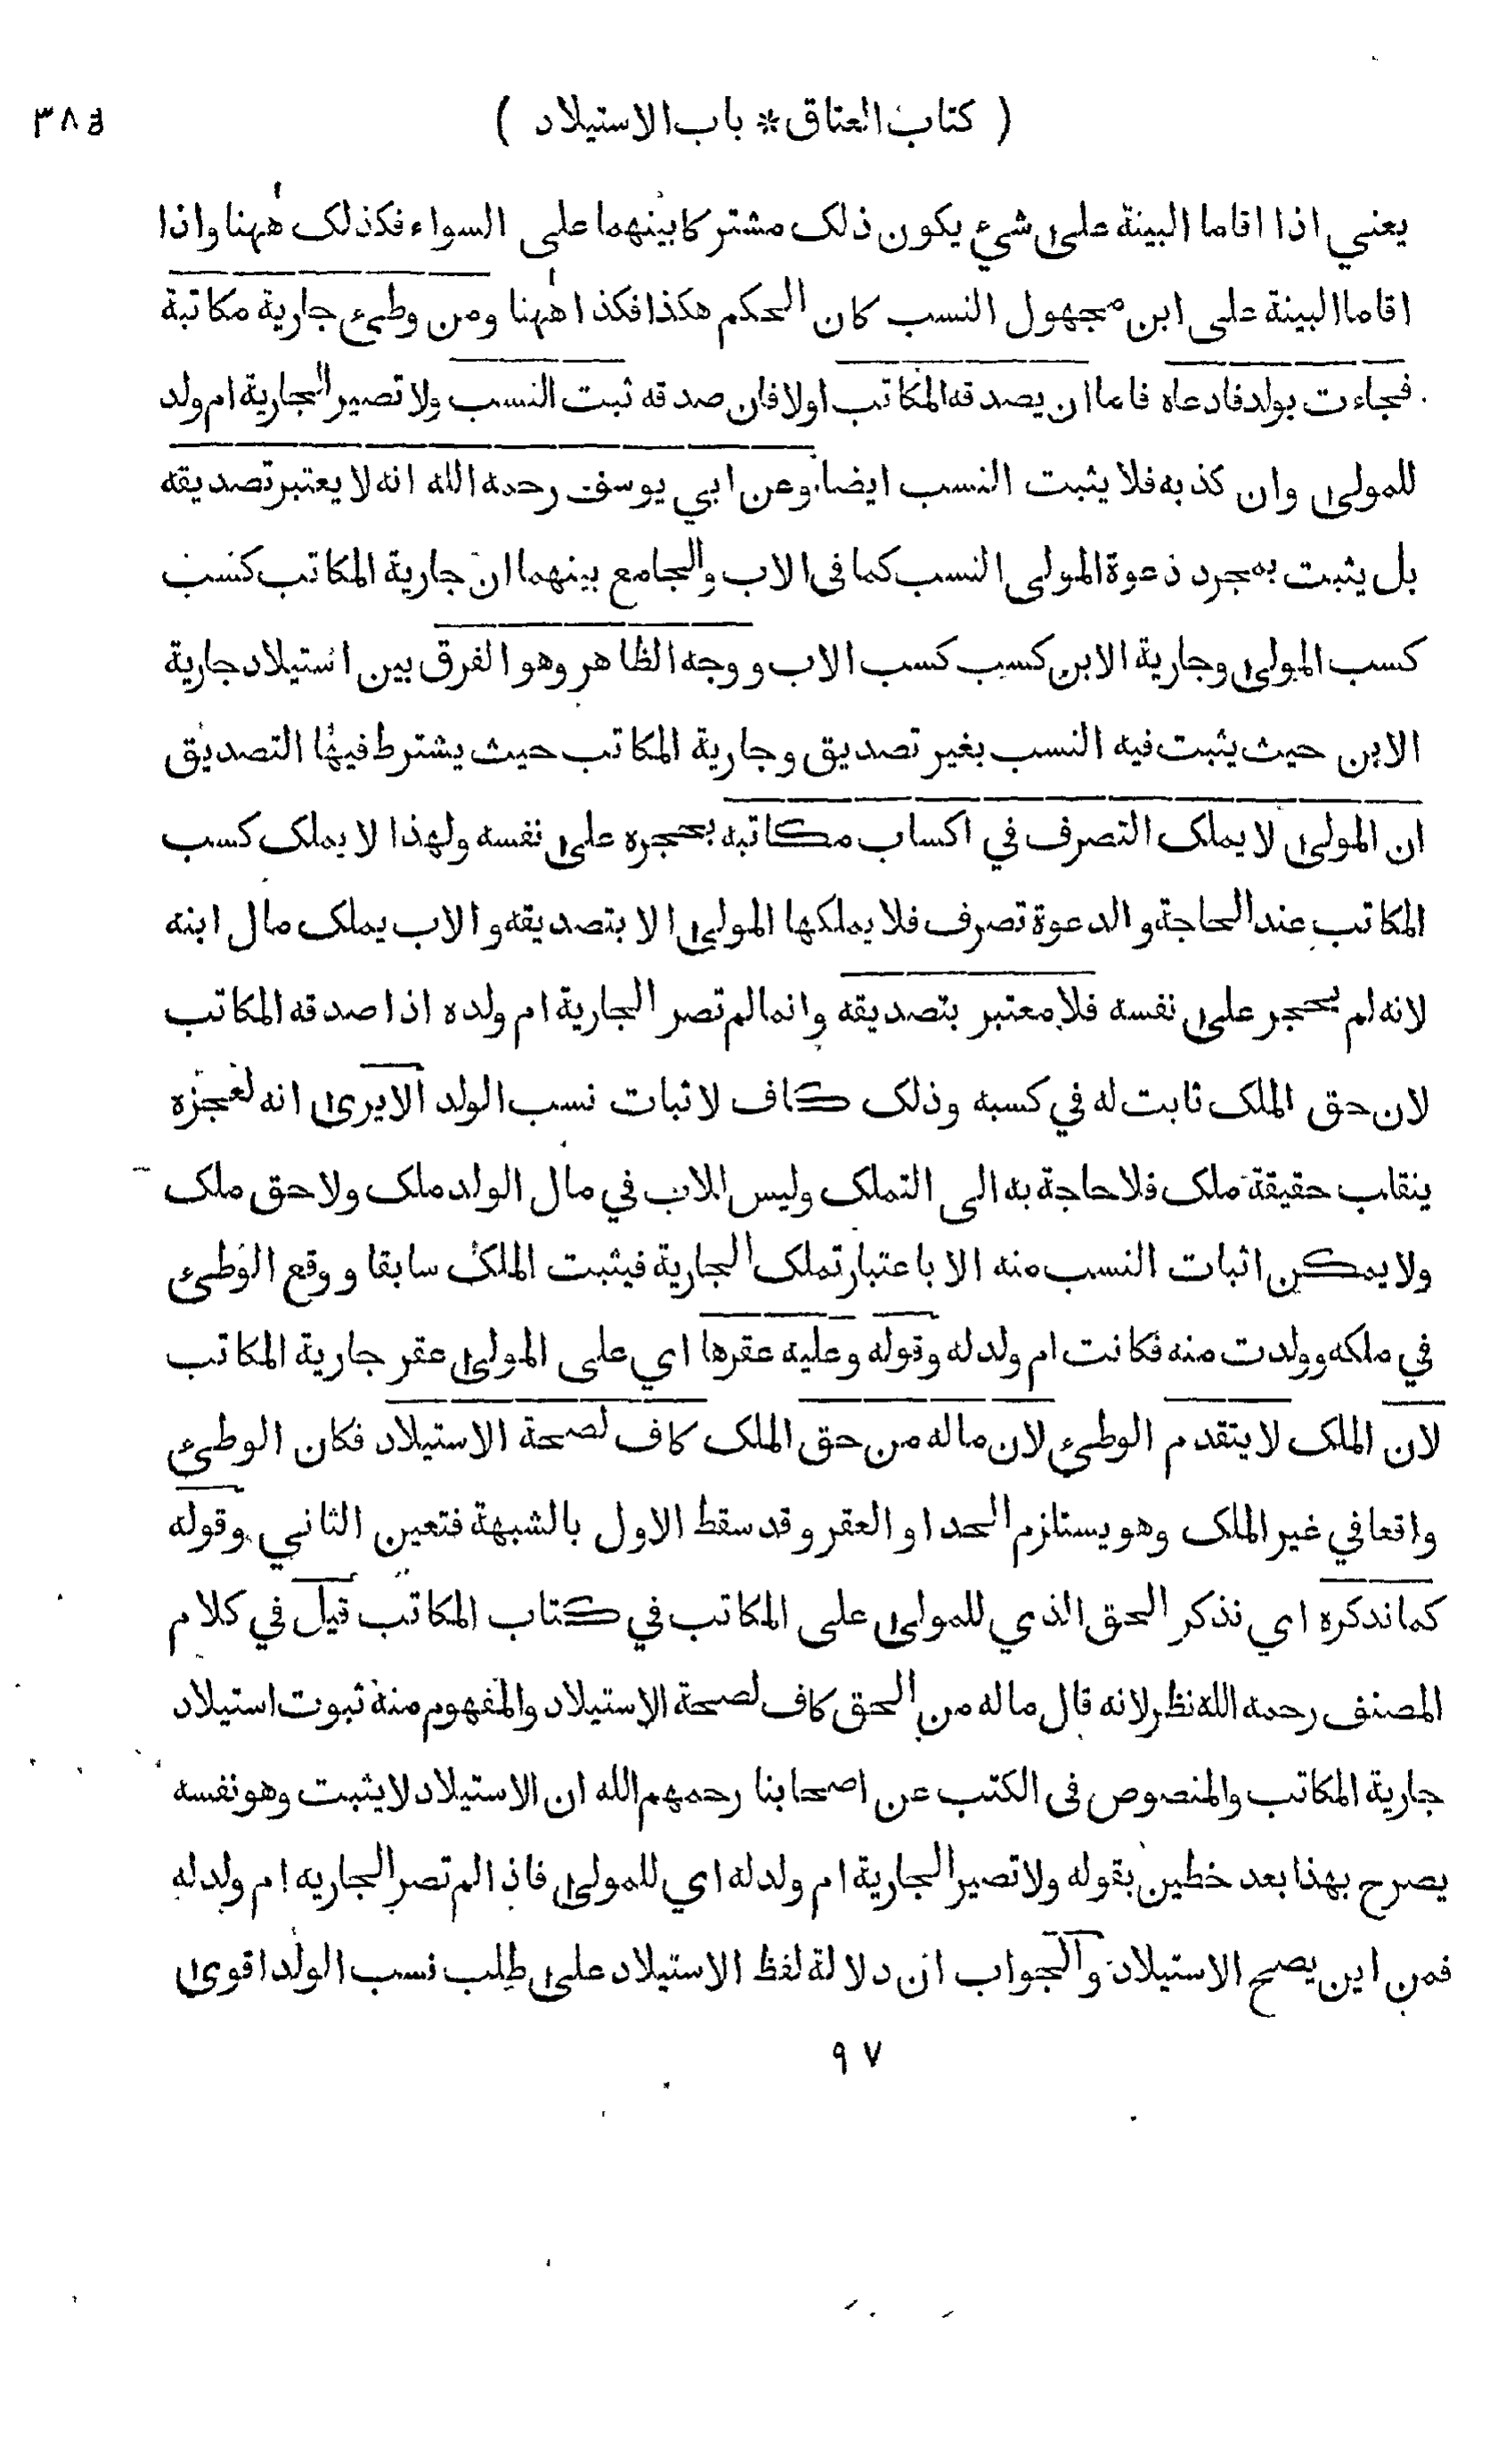 ( كتاب العتاق * باب الاستيلاد )
يعني اذا اقاما البينة على شيء يكون ذلك مشتركا بينهما على السواء فكذلك ههنا واذا
اقاما البينة على ابن مجهول النسب كان الحكم هكذا فكذا ههنا ومن وطىء جارية مكاتبة
فجاءت بولد فادعاه فاما ان يصدقه المكاتب اولا فان صدقه ثبت النسب ولا تصير الجارية ام ولد
للمولى وان كذبه فلا يثبت النسب ايضا وعن ابي يوسف رحمه الله انه لا يعتبر تصديقه
بل يثبت بمجرد دعوة المولى النسب كما في الاب والجامع بينهما ان جارية المكاتب كسب
كسب المولى وجارية الابن كسب كسب الاب ووجه الظاهر وهو الفرق بين استيلاد جارية
الابن حيث يثبت فيه النسب بغير تصديق وجارية المكاتب حيث يشترط فيها التصديق
ان المولى لا يملك التصرف في اكساب مكاتبه بحجره على نفسه ولهذا لا يملك كسب
المكاتب عند الحاجة والدعوة تصرف فلا يملكها المولى الا بتصديقه والاب يملك مال ابنه
لانه لم يحجر على نفسه فلا معتبر بتصديقه وانما لم تصر الجارية ام ولده اذا صدقه المكاتب
لان حق الملك ثابت له في كسبه وذلك كاف لاثبات نسب الولد الا يرى انه لعجزه
ينقلب حقيقة ملك فلا حاجة به الى التملك وليس للاب في مال الولد ملك ولا حق ملك
ولا يمكن اثبات النسب منه الا باعتبار تملك الجارية فيثبت الملك سابقا ووقع الوطىء
في ملكه وولدت منه فكانت ام ولد له وقوله وعليه عقرها اي على المولى عقر جارية المكاتب
لان الملك لا يتقدم الوطىء لان ماله من حق الملك كاف لصحة الاستيلاد فكان الوطىء
واقعا في غير الملك وهو يستلزم الحد او العقر وقد سقط الاول بالشبهة فتعين الثاني وقوله
كما نذكره اي نذكر الحق الذي للمولى على المكاتب في كتاب المكاتب قيل في كلام
المصنف رحمه الله نظر لانه قال ماله من الحق كاف لصحة الاستيلاد والمفهوم منه ثبوت استيلاد
جارية المكاتب والمنصوص في الكتب عن اصحابنا رحمهم الله ان الاستيلاد لا يثبت وهو نفسه
يصرح بهذا بعد خطين بقوله ولا تصير الجارية ام ولد له اي للمولى فاذا لم تصر الجاريه ام ولد له
فمن اين يصح الاستيلاد والجواب ان دلالة لفظ الاستيلاد على طلب نسب الولد اقوى
٩٧